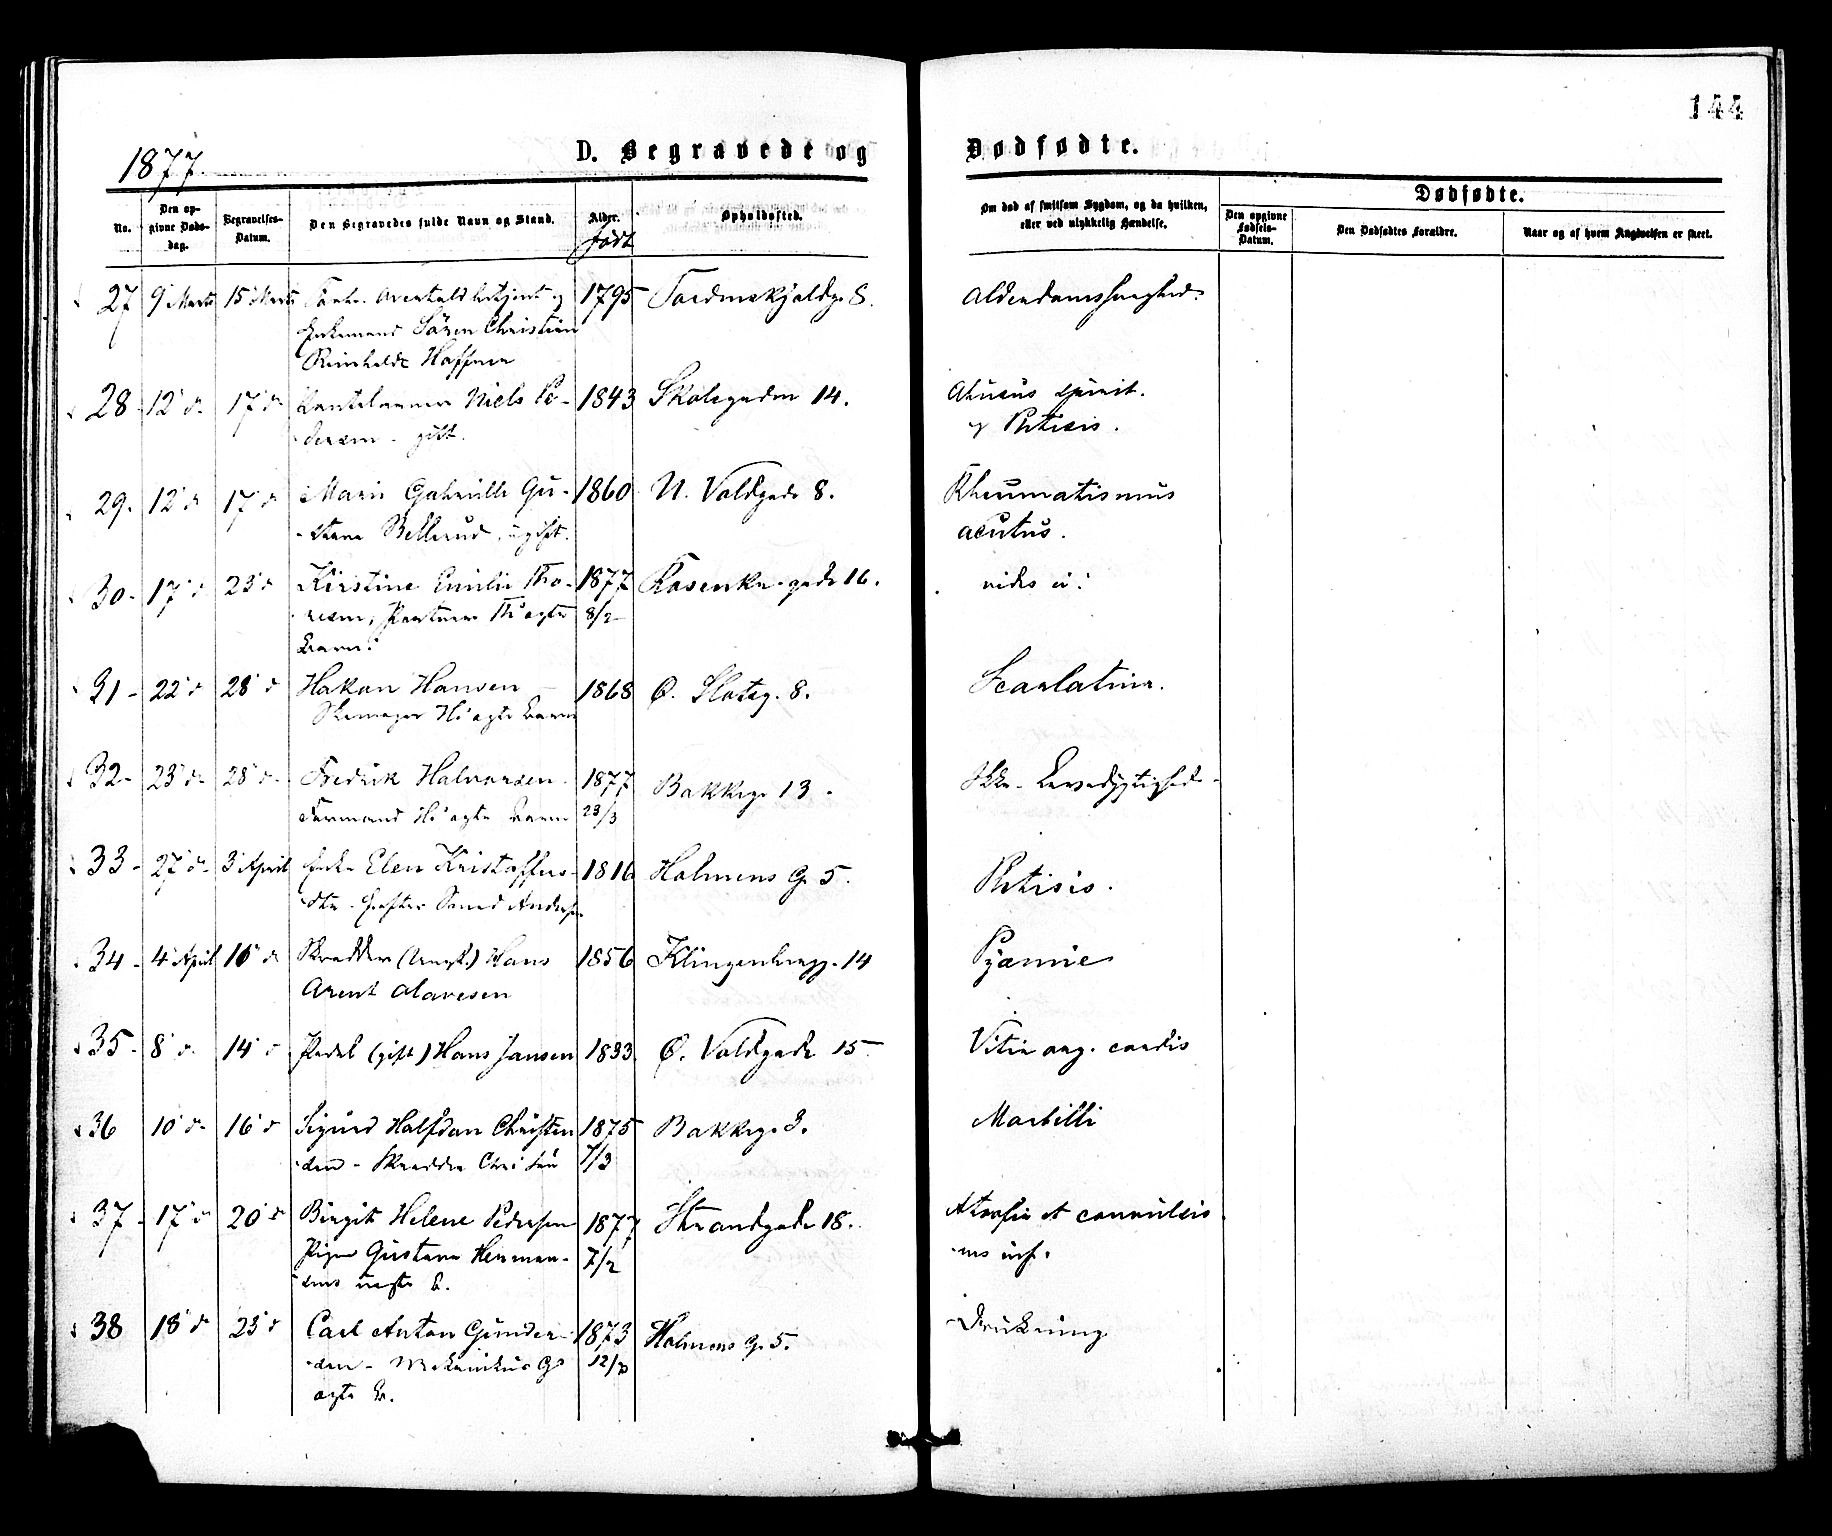 144
1877.
D. Begravede og Dødfødte.
No.
Den opgivne Døds-dag.
Begravelses-Datum.
Den Begravedes fulde Navn og Stand.
Alder.
født
Opholdssted.
Om død af smitsom Sygdom, og da hvilken, eller ved ulykkelig Hændelse.
Dødfødte.
Den opgivne Fødsels-Datum.
Den Dødfødtes Forældre.
Naar og af hvem Angivelsen er skeet.
27 9 Marts 15 Marts 1795 Tordenskjoldg. 8. Alderdomssvaghed.
Enkemand Søren Christian
Reinholdt Hoffman
28 12 d. 17 d. Niels Pe- 1843 Skolegaden 14. Abusus spirit.
dersen - gift. og Phtisis.
29. 12 d. 17 d. Marie Gabrielle Gu- 1860 N. Voldgade 8. Rheumatismus
stava Bellerud, ugift. acutus.
30. 17 d. 23 d. Kirstine Emilie Tho- 1877 Rosenkr. gade 16. vides ei.
resen, Th' ægte 8/2
Barn.
31 - 22 d. 28 d. Hakon Hansen 1868 Ø. Slotsg. 8. Scarlatina.
Skomager H' ægte Barn
32 - 23 d. 28 d. Fredrik Halvorsen 1877 Bakkeg. 13. Ikke Levedygtighed.
Formand H' ægte Barn 23/3
33 - 27 d. 3 April Enke Elen Kristoffers- 1816 Holmens G. 5. Phtisis.
dtr. Andersen
34 - 4 April 10 d. Skrædder (Ungk.) Hans 1856 Klingenbergg. 14 Pyæmie
Arent Olavesen
35 - 8 d. 14 d. Pedel (gift) Hans Jansen 1833. Ø. Voldgade 15 Vitia org. cordis
36 10 d. 16 d. Sigurd Halfdan Christen 1875 Bakkeg. 3. Morbilli
sen - Skrædder 7/3
37 - 17 d. 20 d. Birgit Helene Pedersen 1877 Strandgade 18. Atrofia et convulsio
Pige Gustava Herman- 7/2 nes inf.
sens uægte B.
38 18 d. 23 d. Carl Anton Gunder- 1873 Holmens G. 5. Drukning
sen - Mekanikus G' 12/
ægte B.